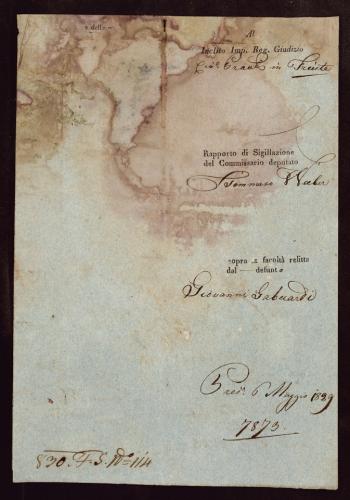 e della
Al
Inclito Imp. Reg. Giudizio
in Trieste
Rapporto di Sigillazione
del Commissario deputato
Tommaso Weber
sopra la facoltà relitta
dal — defunto
Giovanni Gabuardi
Pred. 6 Maggio 1829
7873.
830. F. S. No 114